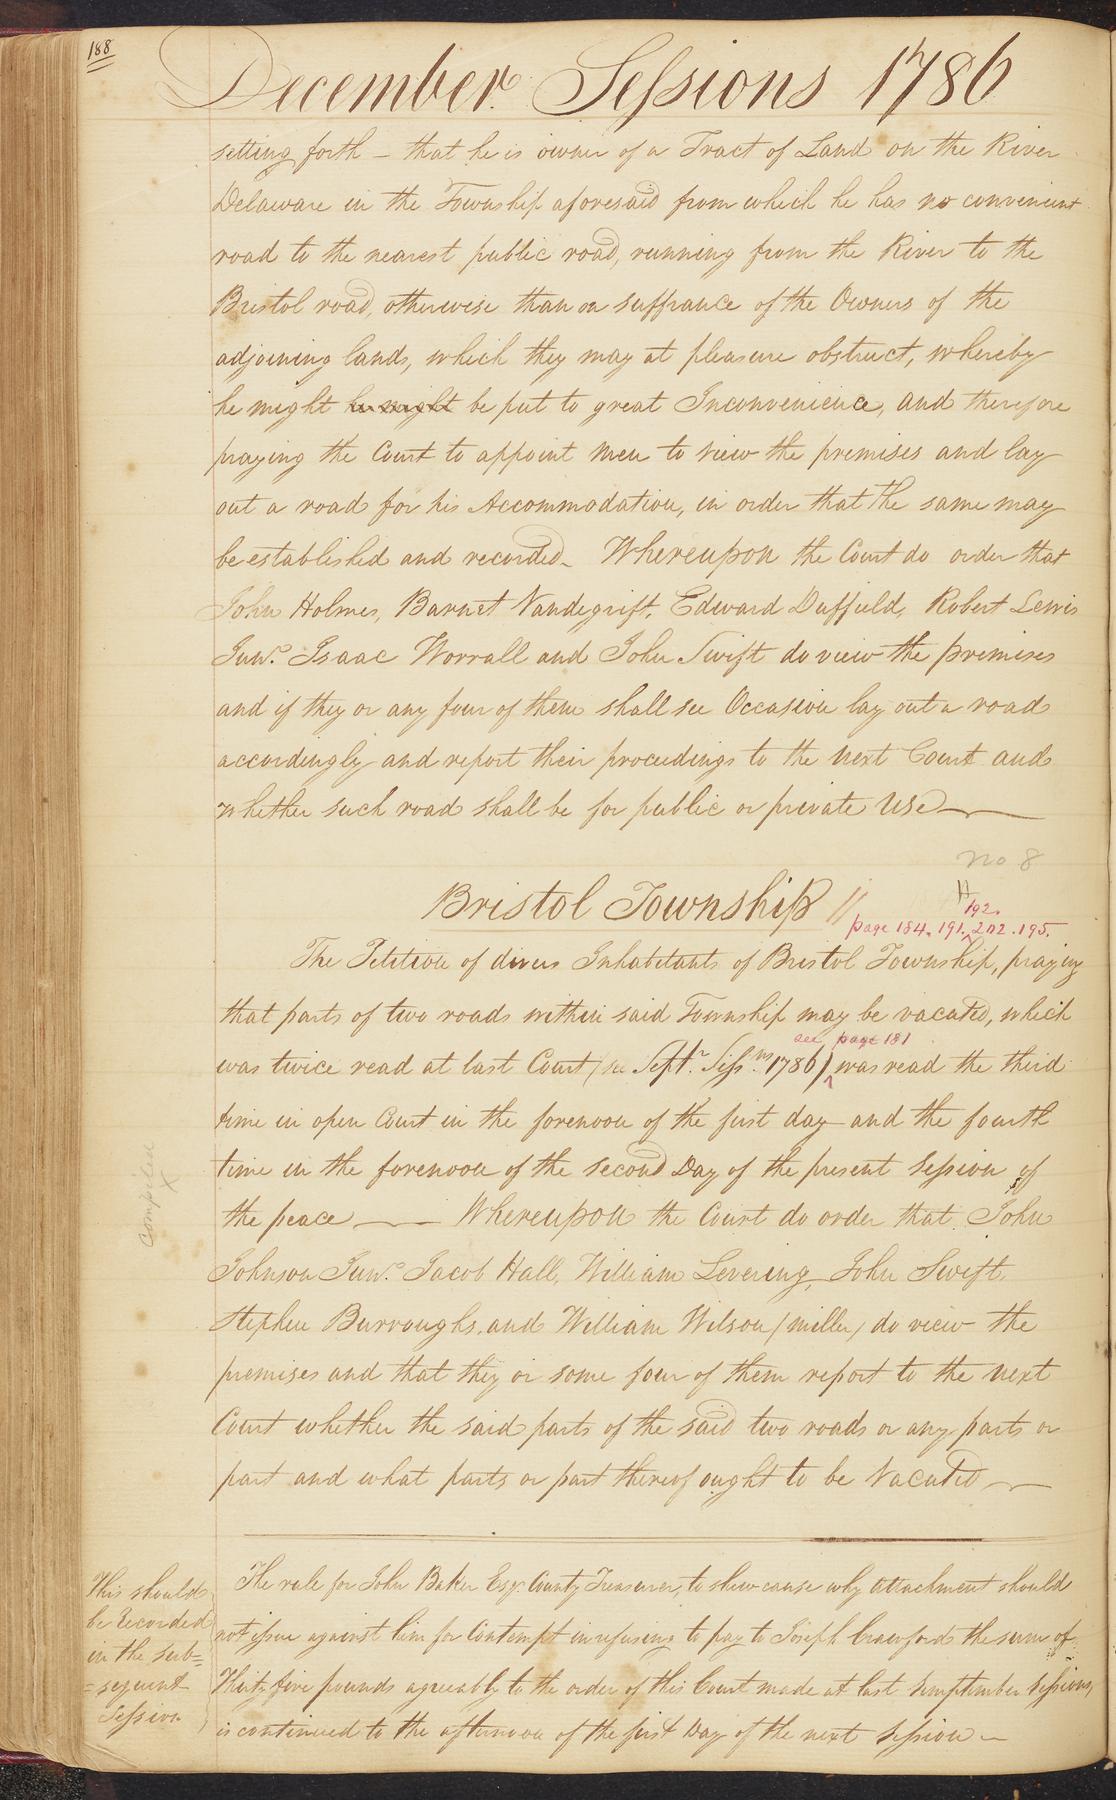 188
December Sessions 1786
setting forth – that he is owner of a Tract of Land on the River
Delaware in the Township aforesaid from which he has no convenient
road to the nearest public road, running from the River to the
Bristol road, otherwise than on suffrance of the Owners of the
adjoining lands, which they may at pleasure obstruct, whereby
he might he might be put to great Inconvenience, and therefore
praying the Court to appoint men to view the premises and lay
out a road for his Accommodation, in order that the same may
be established and recorded – Whereupon the Court do order that
John Holmes, Barnet Vandegrift, Edward Duffield, Robert Lewis
Junr. Isaac Worrall and John Swift do view the premises
and if they or any four of them shall see Occasion lay out a road
accordingly and report their proceedings to the next Court and
whether such road shall be for public or private Use
no 8
Bristol Township //
H
192.
page 184. 191. 202. 195.
The Petition of divers Inhabitants of Bristol Township, praying
that parts of two roads within said Township may be vacated, which
see page 181
was twice read at last Court (see Sept.r Sess.ns 1786) was read the third
time in open Court in the forenoon of the first day and the fourth
time in the forenoon of the second Day of the present Session of
the peace —— Whereupon the Court do order that John
Johnson Junr. Jacob Hall, William Levering, John Swift,
Stephen Burroughs, and William Wilson (miller) do view the
premises and that they or some four of them report to the next
Court whether the said parts of the said two roads or any parts or
part and what parts or part thereof ought to be Vacated
Compiled
X
The rule for John Baker Esqr. County Treasurer, to shew cause why Attachment should
not issue against him for Contempt in refusing to pay to Joseph Crawford the sum of
Thirty five pounds agreeably to the order of this Court made at last Semptember Sessions,
is continued to the afternoon of the first Day of the next Session –
This should
be Recorded
in the sub=
=sequent
Session